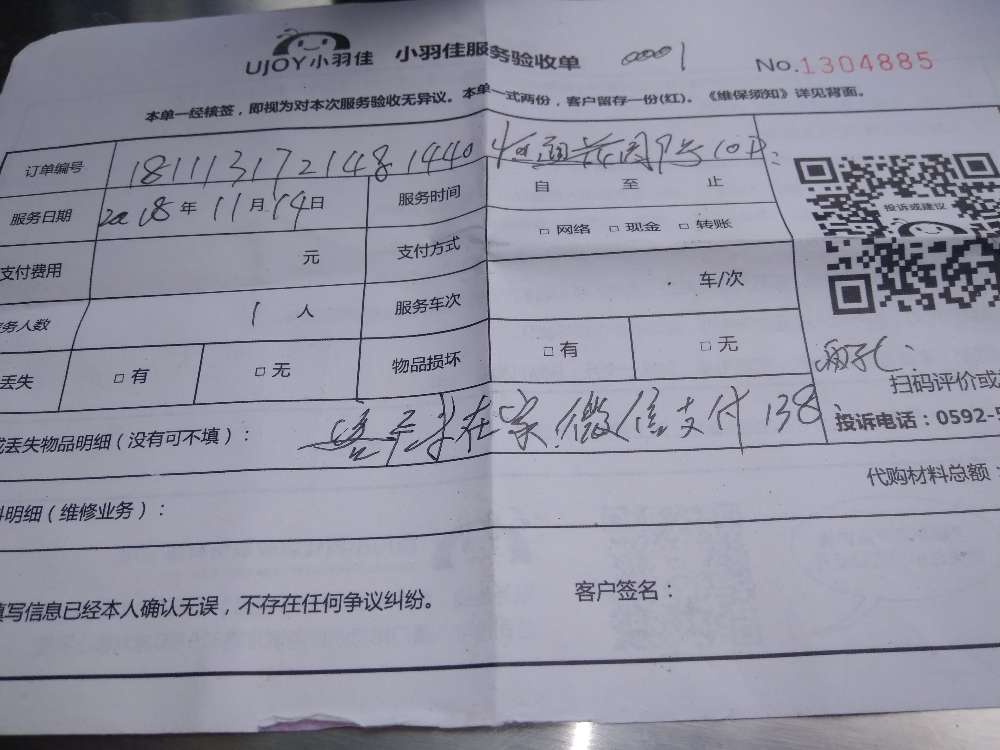 UJOY小羽佳 小羽佳服务验收单 00001 No.1304885
本单一经核签，即视为对本次服务验收无异议。本单一式两份，客户留存一份(红)。《维保须知》详见背面。
订单编号 1811131721481440
服务日期 2018年11月14日 服务时间 自 至 止
投诉或建议
支付费用 元 支付方式 □ 网络 □ 现金 □ 转账
务人数 1 人 服务车次 车/次
丢失 □ 有 □ 无 物品损坏 □ 有 □ 无
扫码评价或
或丢失物品明细（没有可不填）： 在家 微信支付138
投诉电话：0592-5
代购材料总额：
料明细（维修业务）：
填写信息已经本人确认无误，不存在任何争议纠纷。 客户签名：